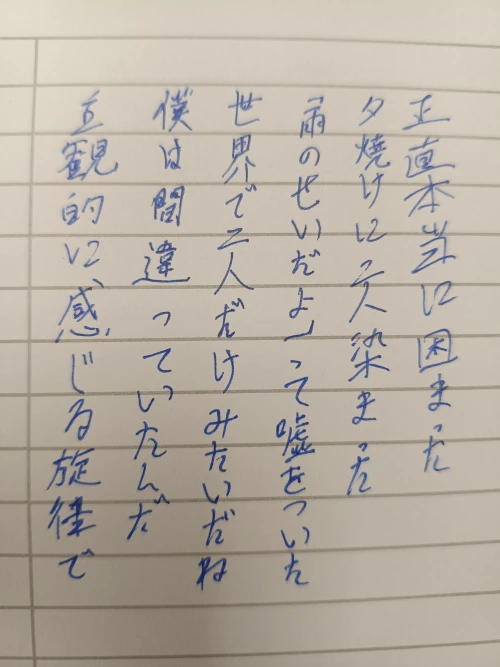 正直本当に困まった
夕焼けに二人染まった
「雨のせいだよ」って嘘をついた
世界で二人だけみたいだね
僕は間違っていたんだ
立観的に感じる旋律で